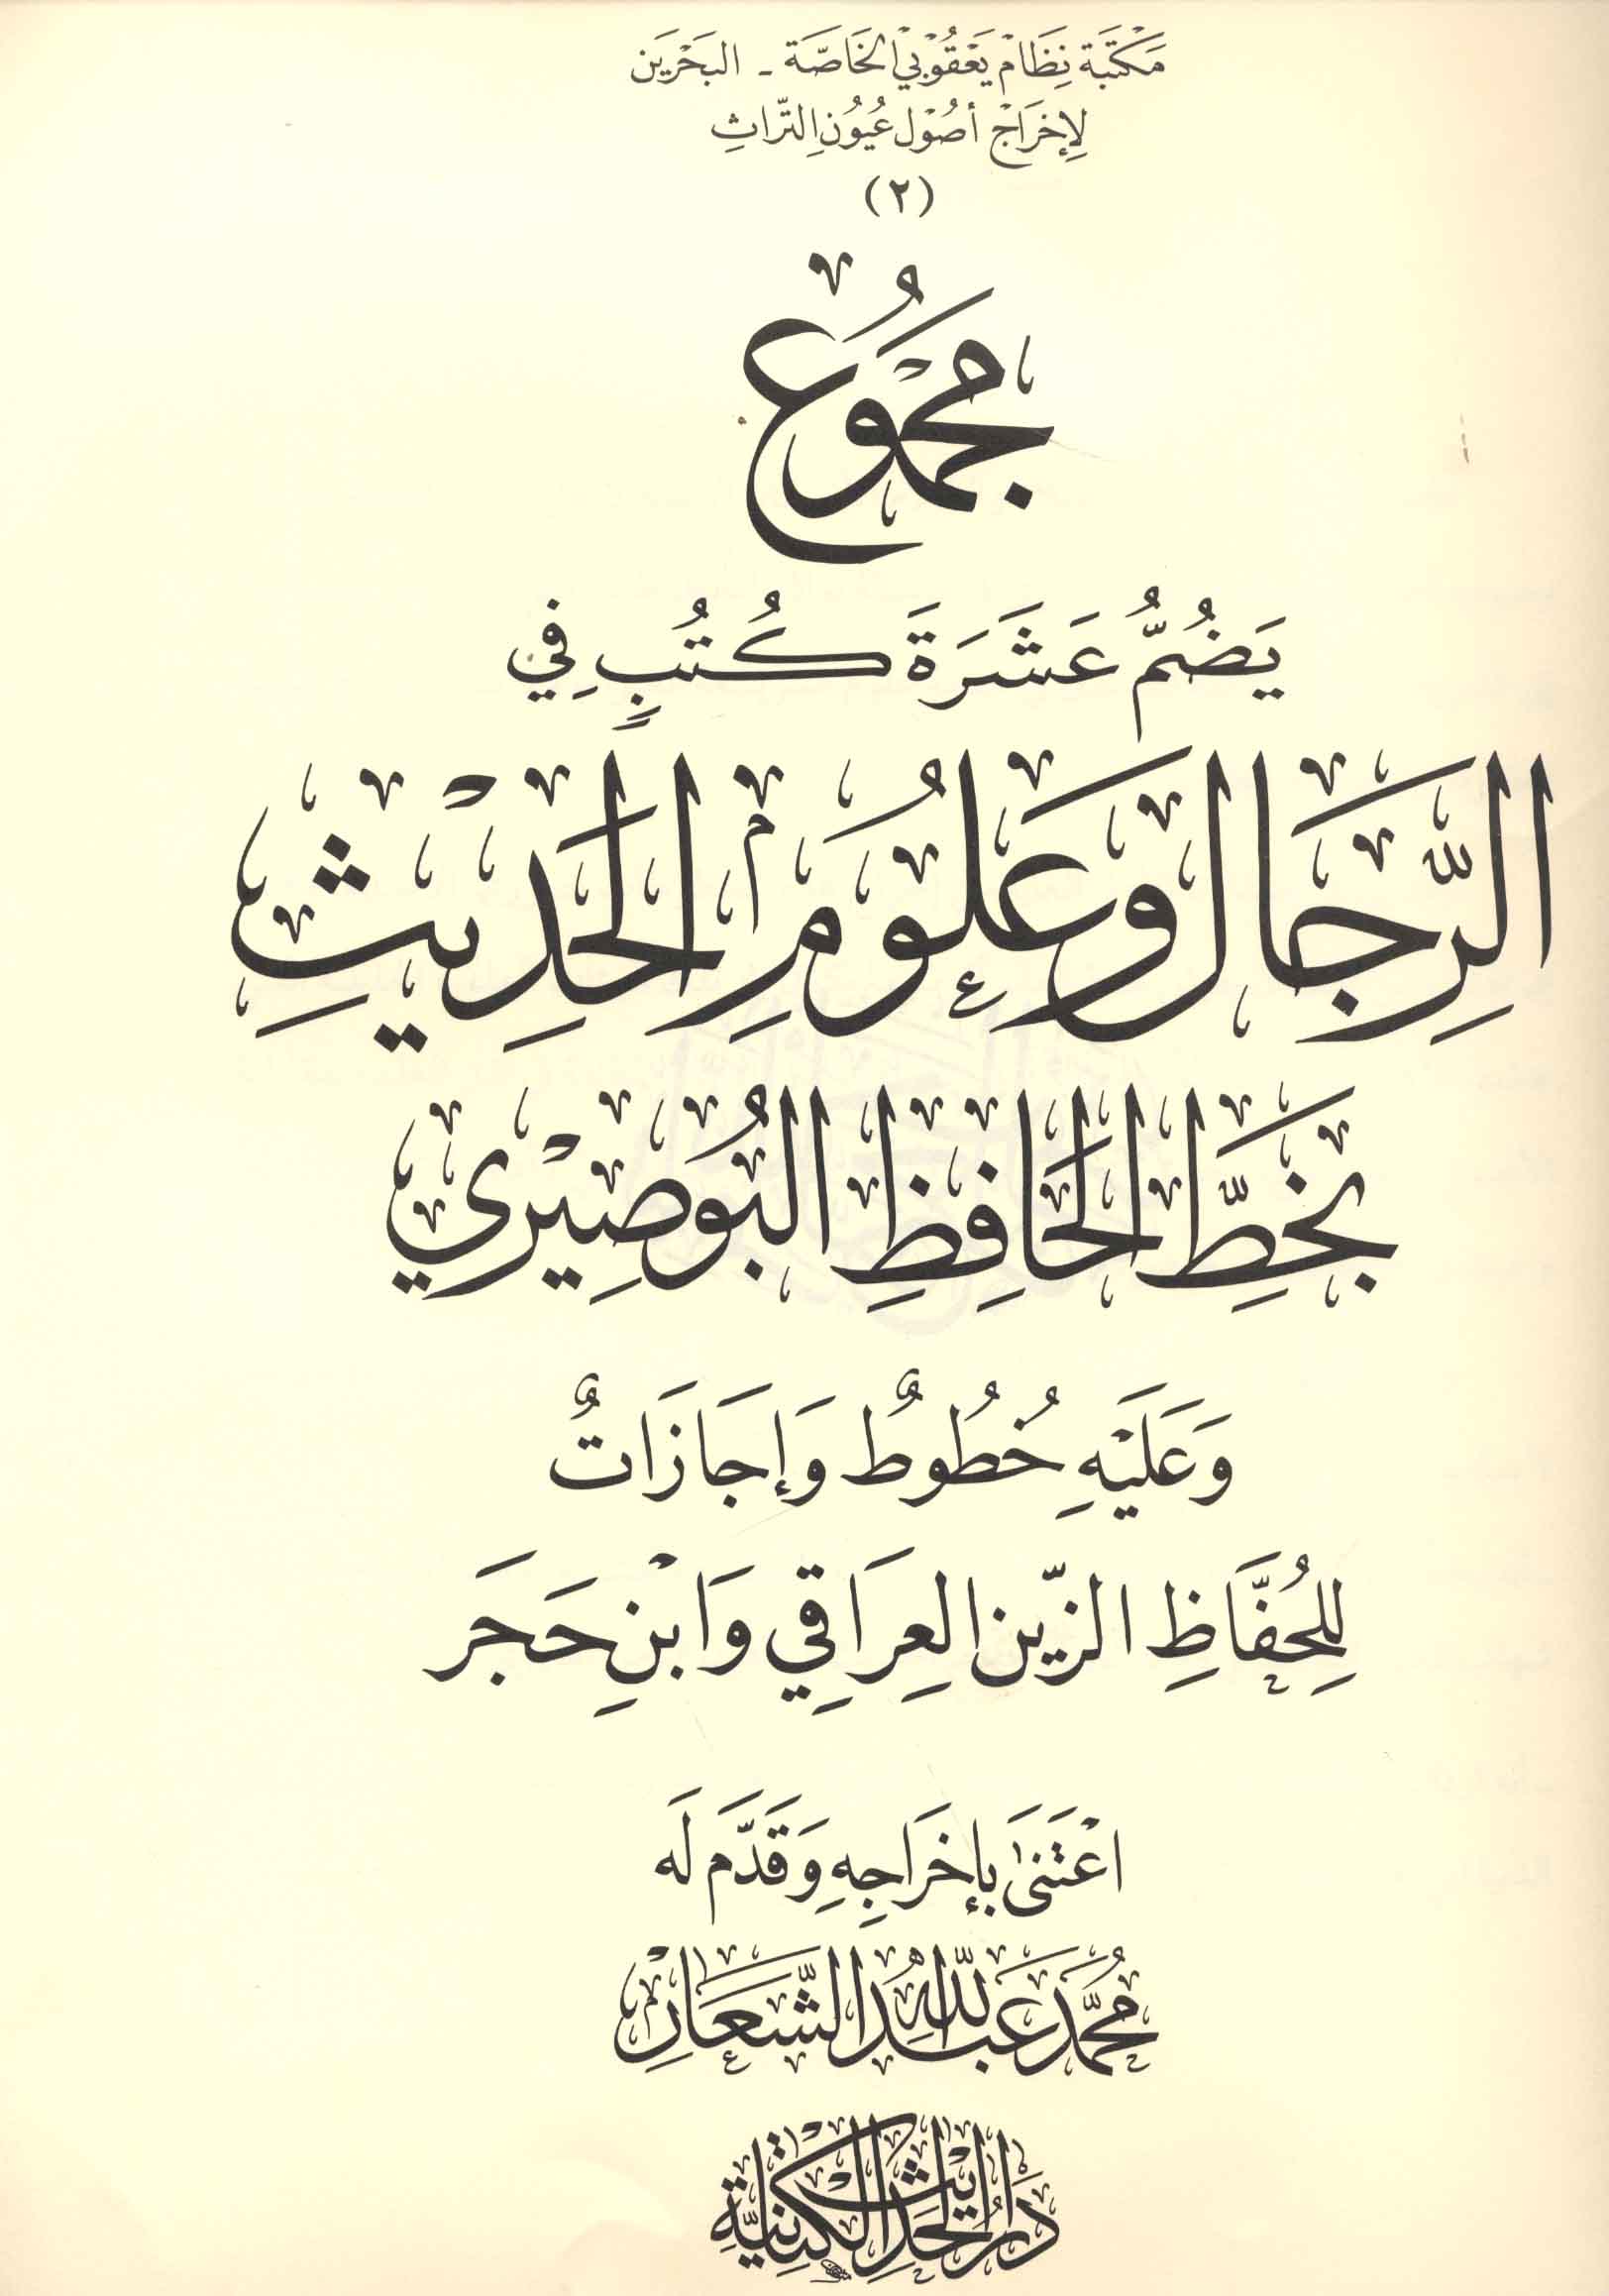 مَكْتَبَة نِظَامْ يَعْقُوْبِيْ الخَاصَّة - البَحْرَين
لِإِخْرَاجْ أصُوْل عُيُوُنِ التّراثِ
(٢)
مَجْمُوُع
يَضُمُّ عَشَرَةَ كُتُبٍ فِيْ
الرِّجَال وَعُلُومِ الْحَدِيْثِ
بِخَطِّ الْحَافِظِ الْبُوْصِيْرِي
وَعَلَيْهِ خُطُوطٌ وَإِجَازَاتٌ
لِلْحُفَّاظِ الزّين العِرَاقِي وَابْنِ حَجَر
اعْتَنَىٰ بِإِخرَاجِهِ وَقَدَّم لَه
مُحَمَّد عَبْدُ اللهِ الشَّعَّار
دَارُ الْحَدِيْثِ الْكَتَّانِيَّةِ